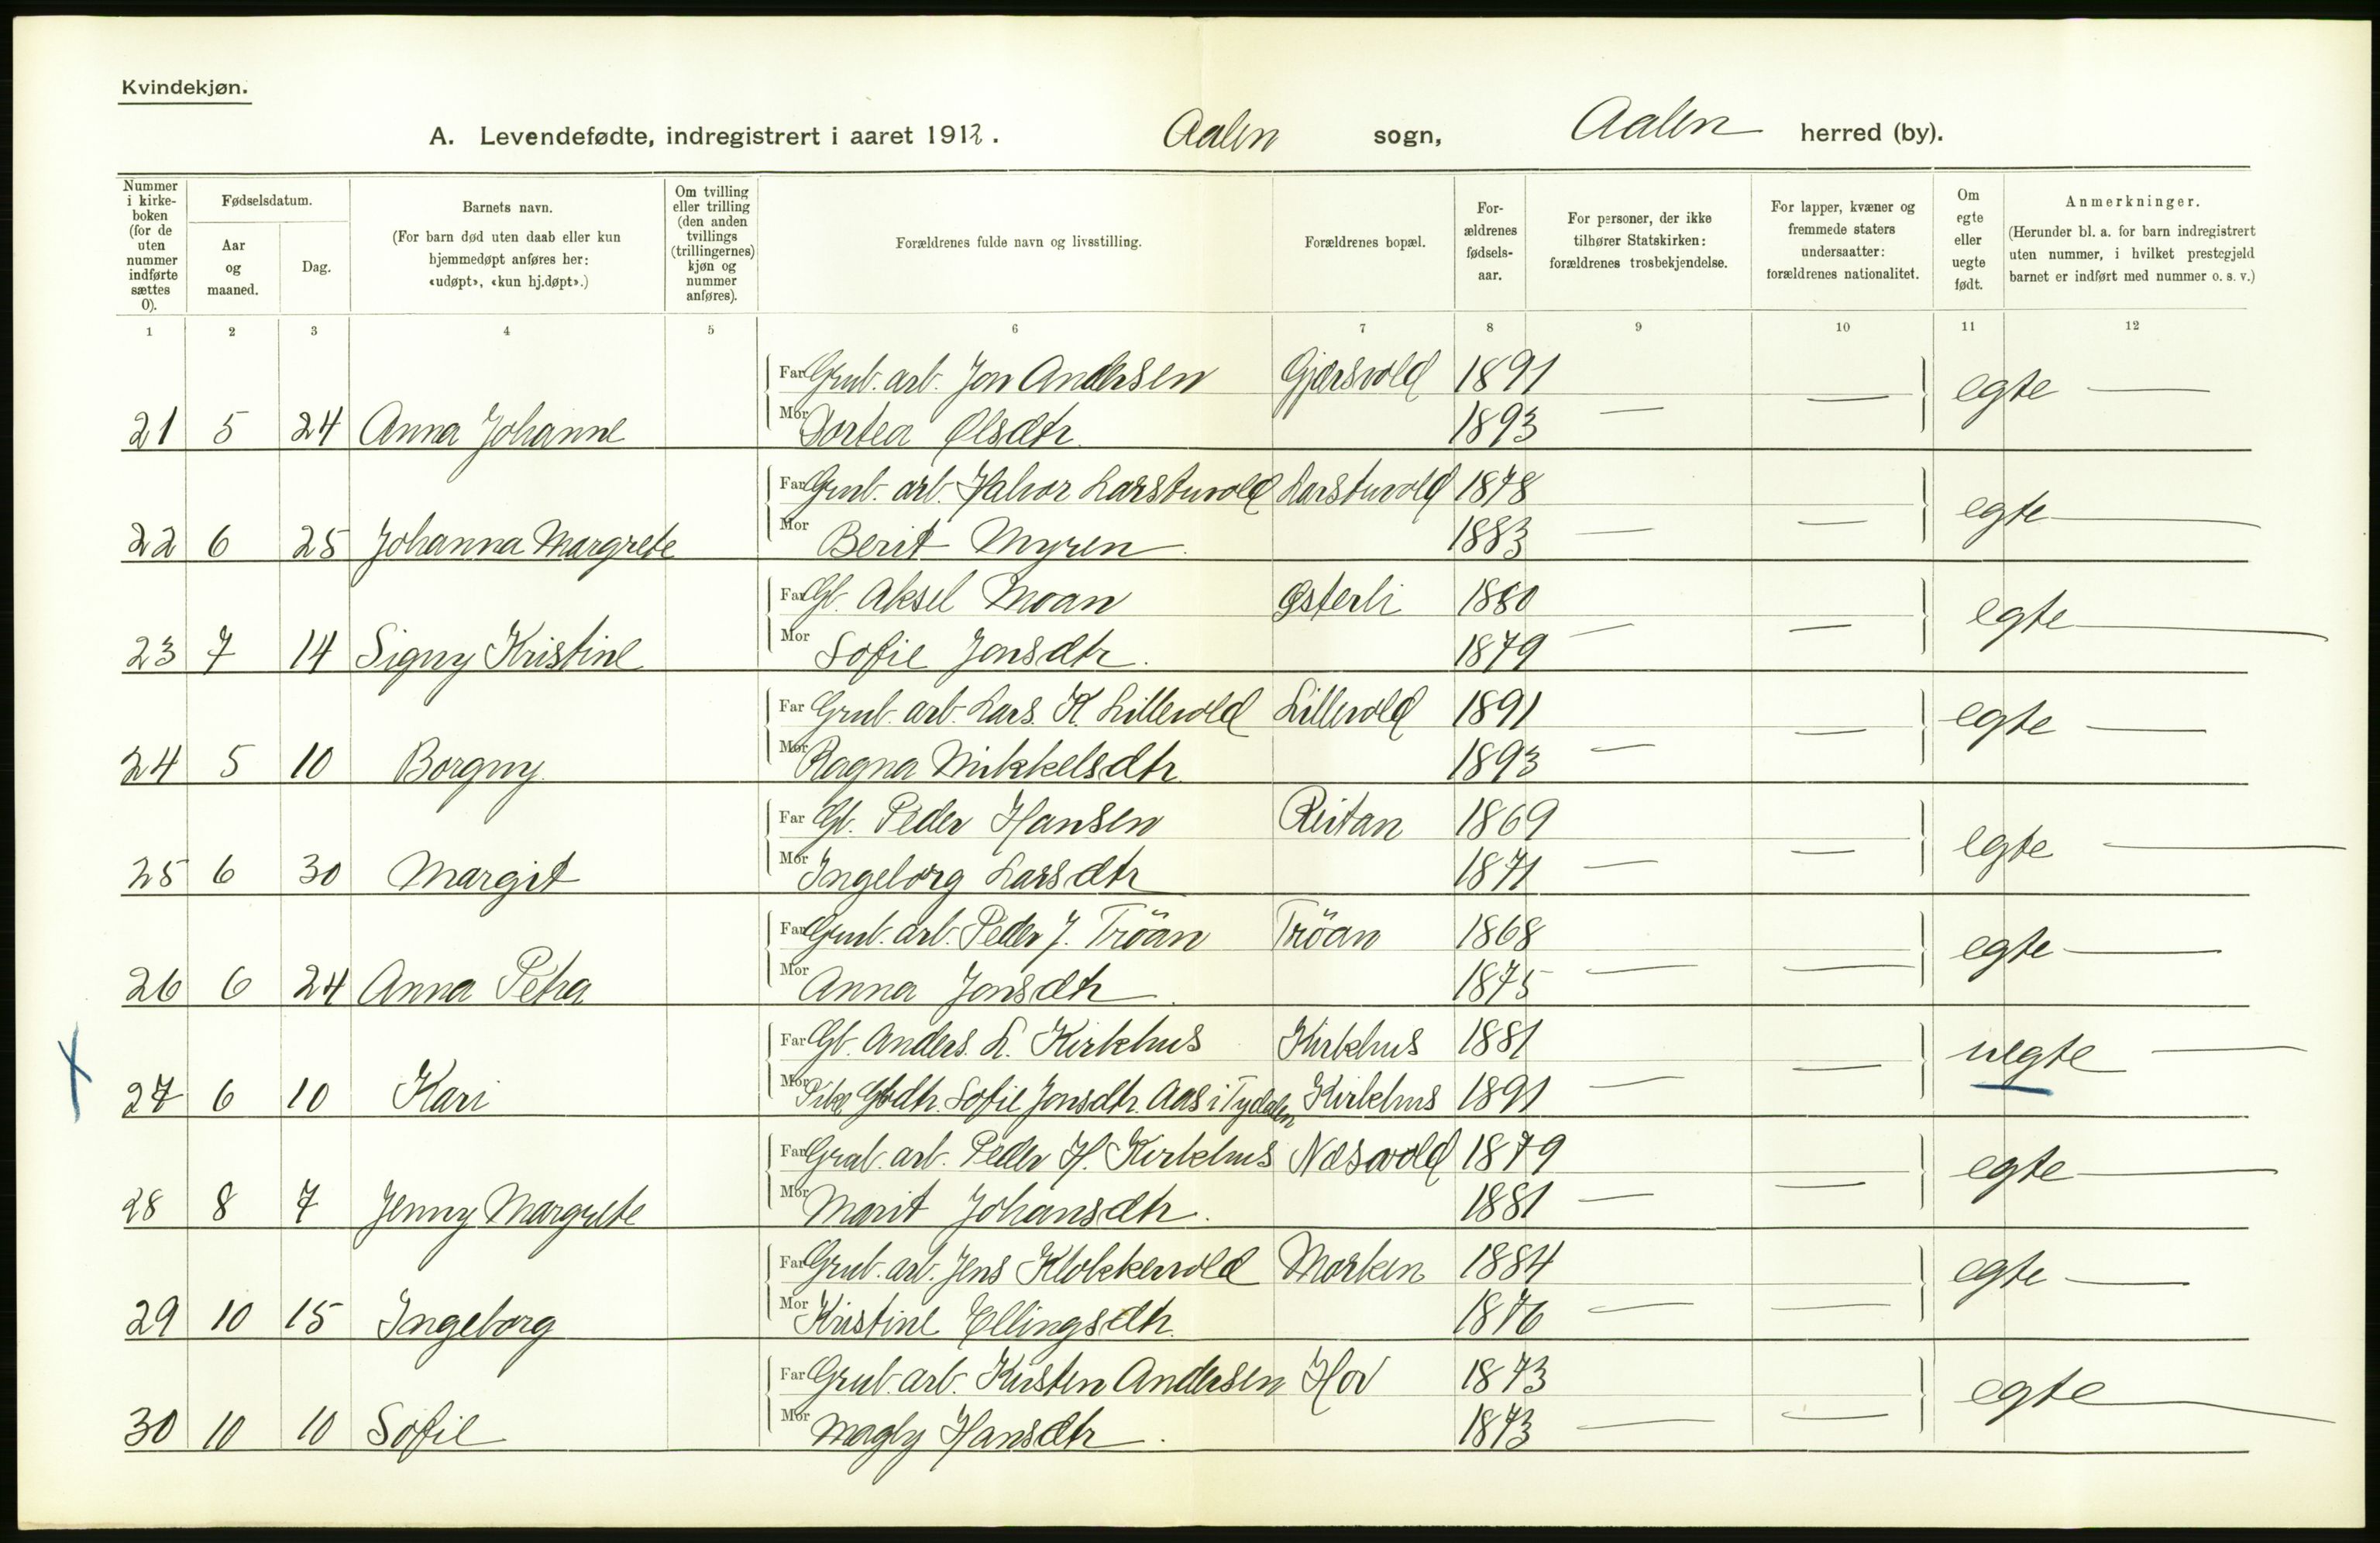 Kvindekjøn.
A. Levendefødte, indregistrert i aaret 1912. Aalen sogn, Aalen herred (by).
Nummer i kirke-boken (for de uten nummer indførte sættes 0).
Fødselsdatum.
Aar og maaned.
Dag.
Barnets navn.
(For barn død uten daab eller kun hjemmedøpt anføres her: «udøpt», «kun hj.døpt».)
Om tvilling eller trilling (den anden tvillings (trillingernes) kjøn og nummer anføres).
Forældrenes fulde navn og livsstilling.
Forældrenes bopæl.
For-ældrenes fødsels-aar.
For personer, der ikke tilhører Statskirken: forældrenes trosbekjendelse.
For lapper, kvæner og fremmede staters undersaatter: forældrenes nationalitet.
Om egte eller uegte født.
Anmerkninger.
(Herunder bl. a. for barn indregistrert uten nummer, i hvilket prestegjeld barnet er indført med nummer o. s. v.)
1 2 3 4 5 6 7 8 9 10 11 12
Far Grub. arb. Jon Andersen Gjersvold 1891 egte —
21 5 24 Anna Johanne Mor Dortea Olsdtr. 1893 — —
Far Grub. arb. Halvor Larstuvold Larstuvold 1878 egte —
22 6 25 Johanna Margrete Mor Berit Myren 1883 — —
Far Gb. Aksel Moan Østerli 1880 egte —
23 7 14 Signy Kristine Mor Sofie Jonsdtr. 1879 — —
Far Grub. arb. Lars. K. Lillevold Lillevold 1891 egte —
24 5 10 Borgny Mor Ragna Mikkelsdtr. 1893 — —
Far Gb. Peder Hansen Reitan 1869 egte —
25 6 30 Margit Mor Ingeborg Larsdtr 1871 — —
Far Grub. arb. Peder J. Tröan Tröan 1868 egte —
26 6 24 Anna Petra Mor Anna Jonsdtr. 1875 — —
Far Gb. Anders. L. Kirkhus Kirkhus 1881 uegte —
27 6 10 Kari Mor Pike Gbdtr. Sofie Jonsdtr. Aas i Tydalen Kirkhus 1891 — —
Far Grub. arb. Peder H. Kirkhus Næsvold 1879 egte —
28 8 7 Jenny Margrete Mor Marit Johansdtr. 1881 — —
Far Grub. arb. Jens Klokkervold Morken 1884 egte —
29 10 15 Ingeborg Mor Kristine Ellingsdtr. 1876 — —
Far Grub. arb. Kirsten Andersen Hov 1873 egte —
30 10 10 Sofie Mor Magly Hansdtr. 1873 — —